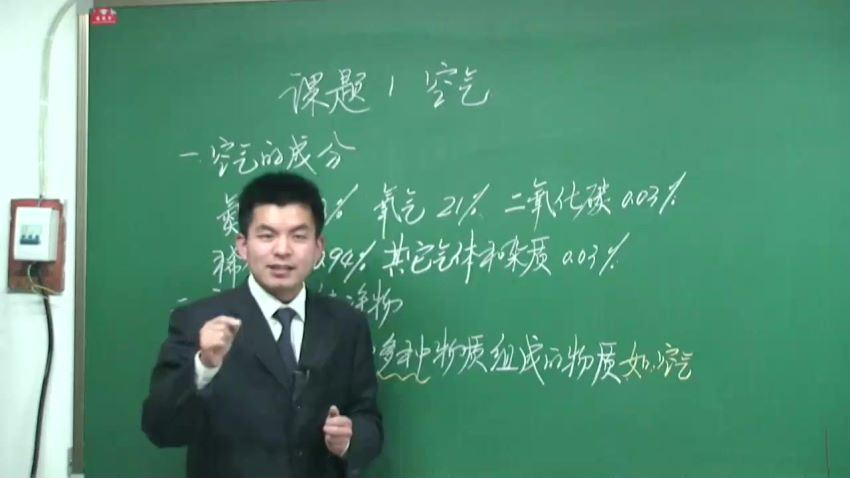 课题1 空气
一.空气的成分
氮 % 氧气21% 二氧化碳0.03%
稀 0.94% 其它气体和杂质0.03%
物
多种物质组成的物质 如:空气